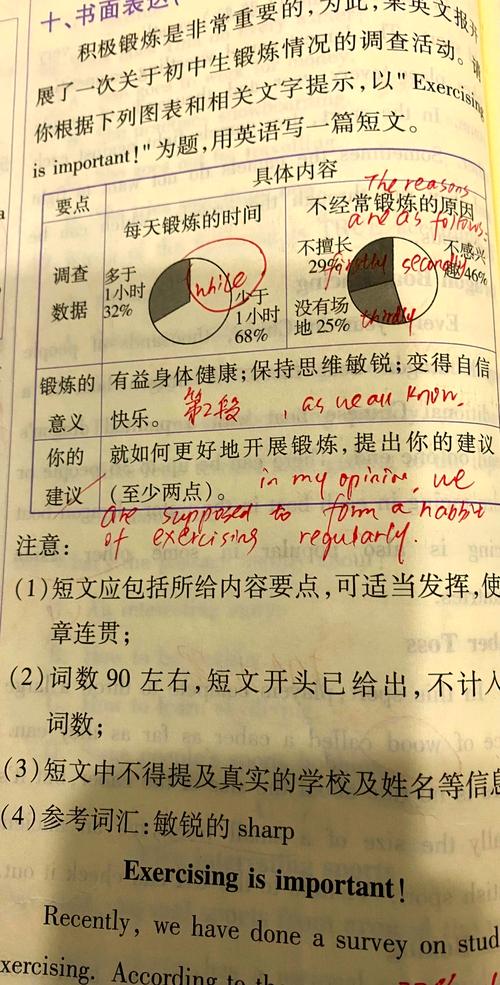 十、书面表达
积极锻炼是非常重要的,为此,某英文报开
展了一次关于初中生锻炼情况的调查活动。请
你根据下列图表和相关文字提示,以"Exercising
is important!"为题,用英语写一篇短文。
具体内容
要点
每天锻炼的时间
不经常锻炼的原因
The reasons
are as follows:
调查
数据
多于
1小时
32%
while
少于
1小时
68%
不擅长
29%
firstly
secondly
不感兴
趣46%
没有场
地 25%
thirdly
锻炼的
意义
有益身体健康;保持思维敏锐;变得自信
快乐。
第2段
, as we all know.
你的
建议
就如何更好地开展锻炼,提出你的建议
(至少两点)。
in my opinion, we
are supposed to form a habbit
of exercising regularly.
注意:
(1)短文应包括所给内容要点,可适当发挥,使
章连贯;
(2)词数 90 左右,短文开头已给出,不计入
词数;
(3)短文中不得提及真实的学校及姓名等信息
(4)参考词汇:敏锐的 sharp
Exercising is important!
Recently, we have done a survey on stud
exercising. According to the